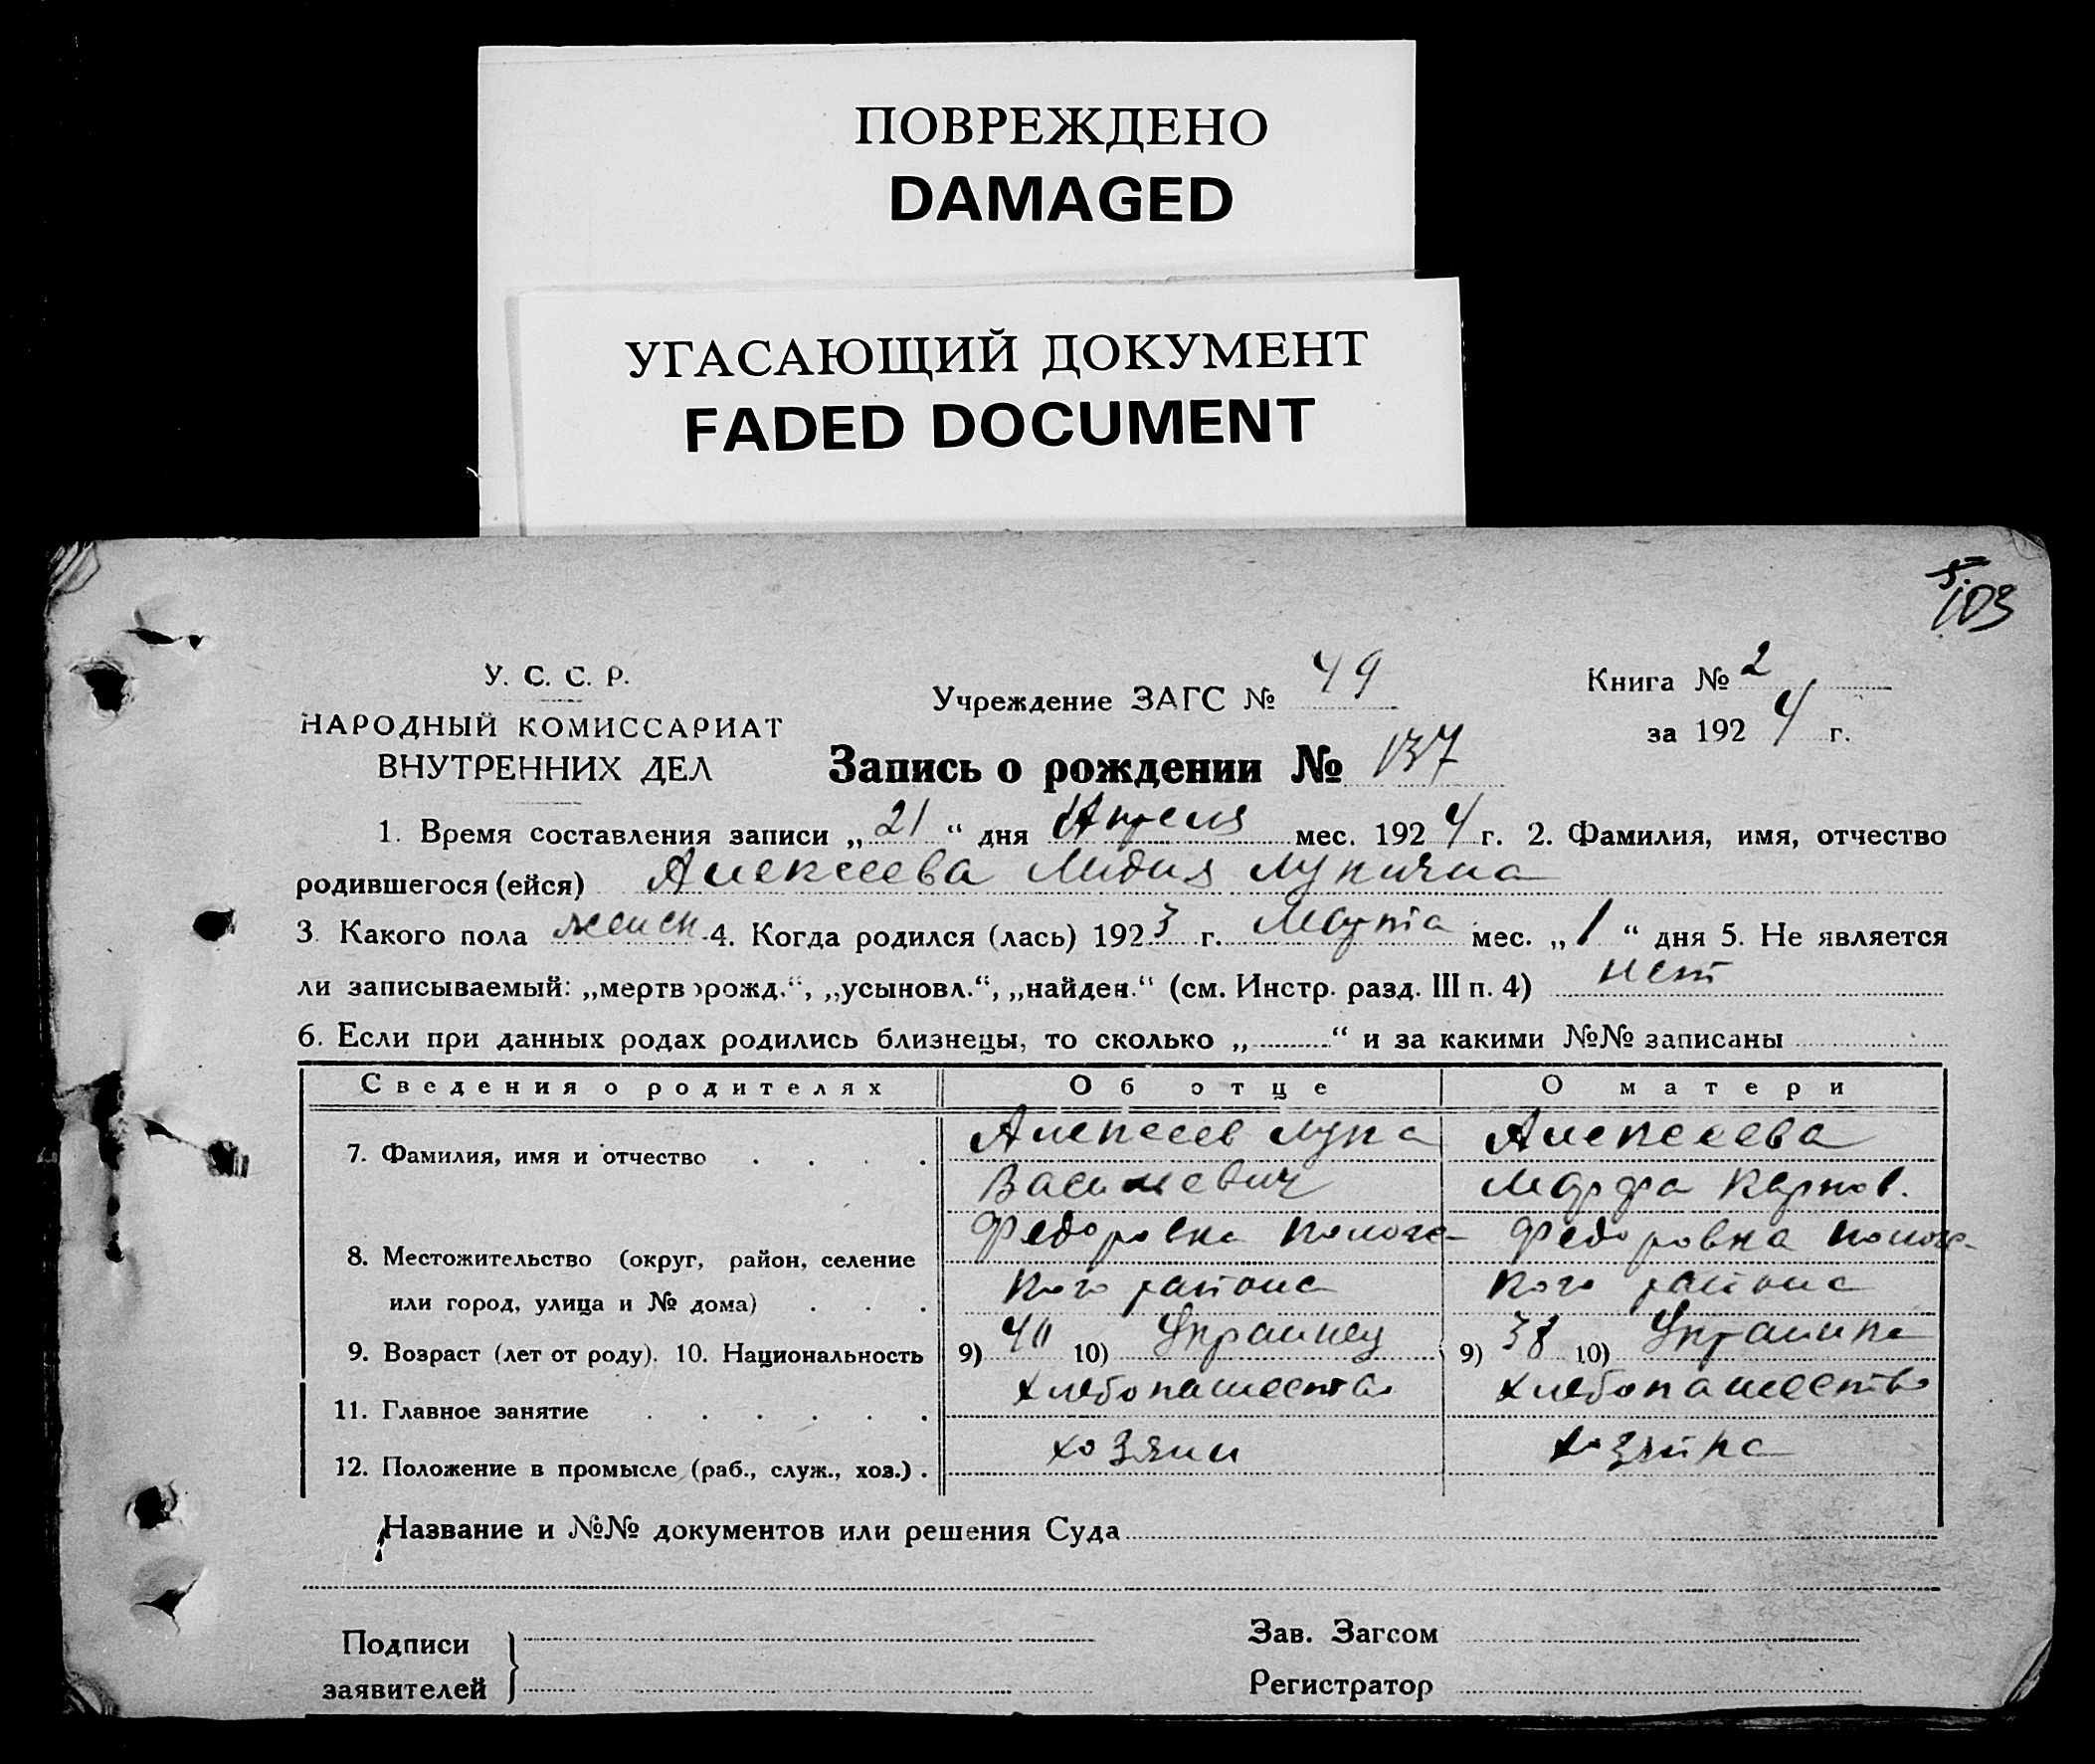 ПОВРЕЖДЕНО
DAMAGED
УГАСАЮЩИЙ ДОКУМЕНТ
FADED DOCUMENT
103
У. С. С. Р.
НАРОДНЫЙ КОМИССАРИАТ
ВНУТРЕННИХ ДЕЛ
Учреждение ЗАГС № 49
Книга № 2
за 1924 г.
Запись о рождении № 137
1. Время составления записи „21“ дня Апреля мес. 1924 г. 2. Фамилия, имя, отчество
родившегося (ейся) Алексеева Лидия Лукична
3. Какого пола женск 4. Когда родился (лась) 1923 г. Марта мес. „1“ дня 5. Не является
ли записываемый: „мертворожд.“, „усыновл.“, „найден.“ (см. Инстр. разд. III п. 4) нет
6. Если при данных родах родились близнецы, то сколько „ “ и за какими №№ записаны
Сведения о родителях Об отце О матери
7. Фамилия, имя и отчество Алексеев Лука Алексеева
Василиевич Марфа Карпов.
Федоровка Полог- Федоровка Полог-
8. Местожительство (округ, район, селение
кого района кого района
или город, улица и № дома)
9. Возраст (лет от роду). 10. Национальность 9) 40 10) Украинец 9) 38 10) Украинка
11. Главное занятие хлебопашество хлебопашество
12. Положение в промысле (раб., служ., хоз.) хозяин хозяйка
Название и №№ документов или решения Суда
Подписи
заявителей
Зав. Загсом
Регистратор